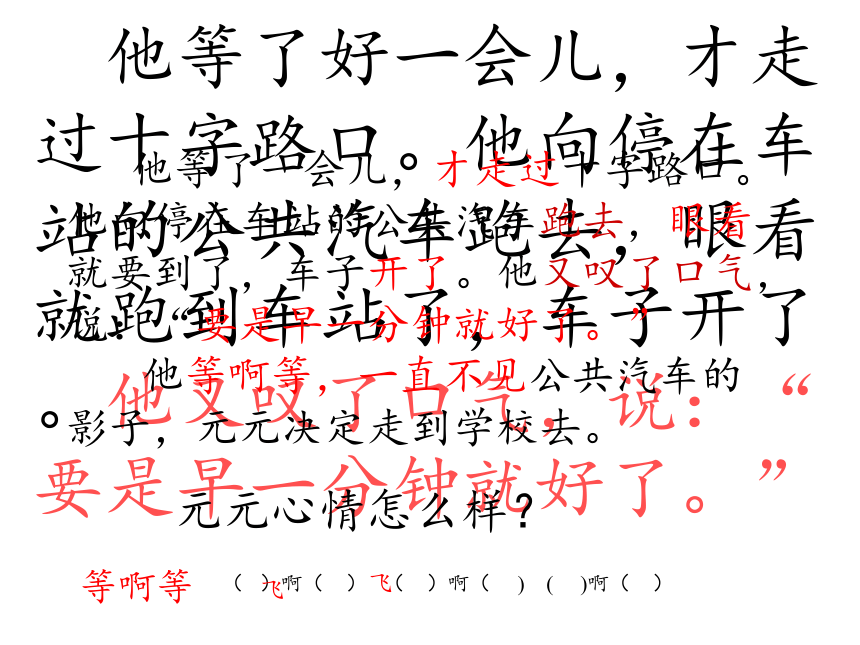 他等了好一会儿，才走
过十字路口。他向停在车
站的公共汽车跑去，眼看
就跑到车站了，车子开了
。
他又叹了口气，说：“
要是早一分钟就好了。”
他等了一会儿，才走过十字路口。
他向停在车站的公共汽车跑去，眼看
就要到了，车子开了。他又叹了口气，
说：“要是早一分钟就好了。”
他等啊等，一直不见公共汽车的
影子，元元决定走到学校去。
元元心情怎么样？
等啊等 （飞）啊（飞）（ ）啊（ ）（ ）啊（ ）